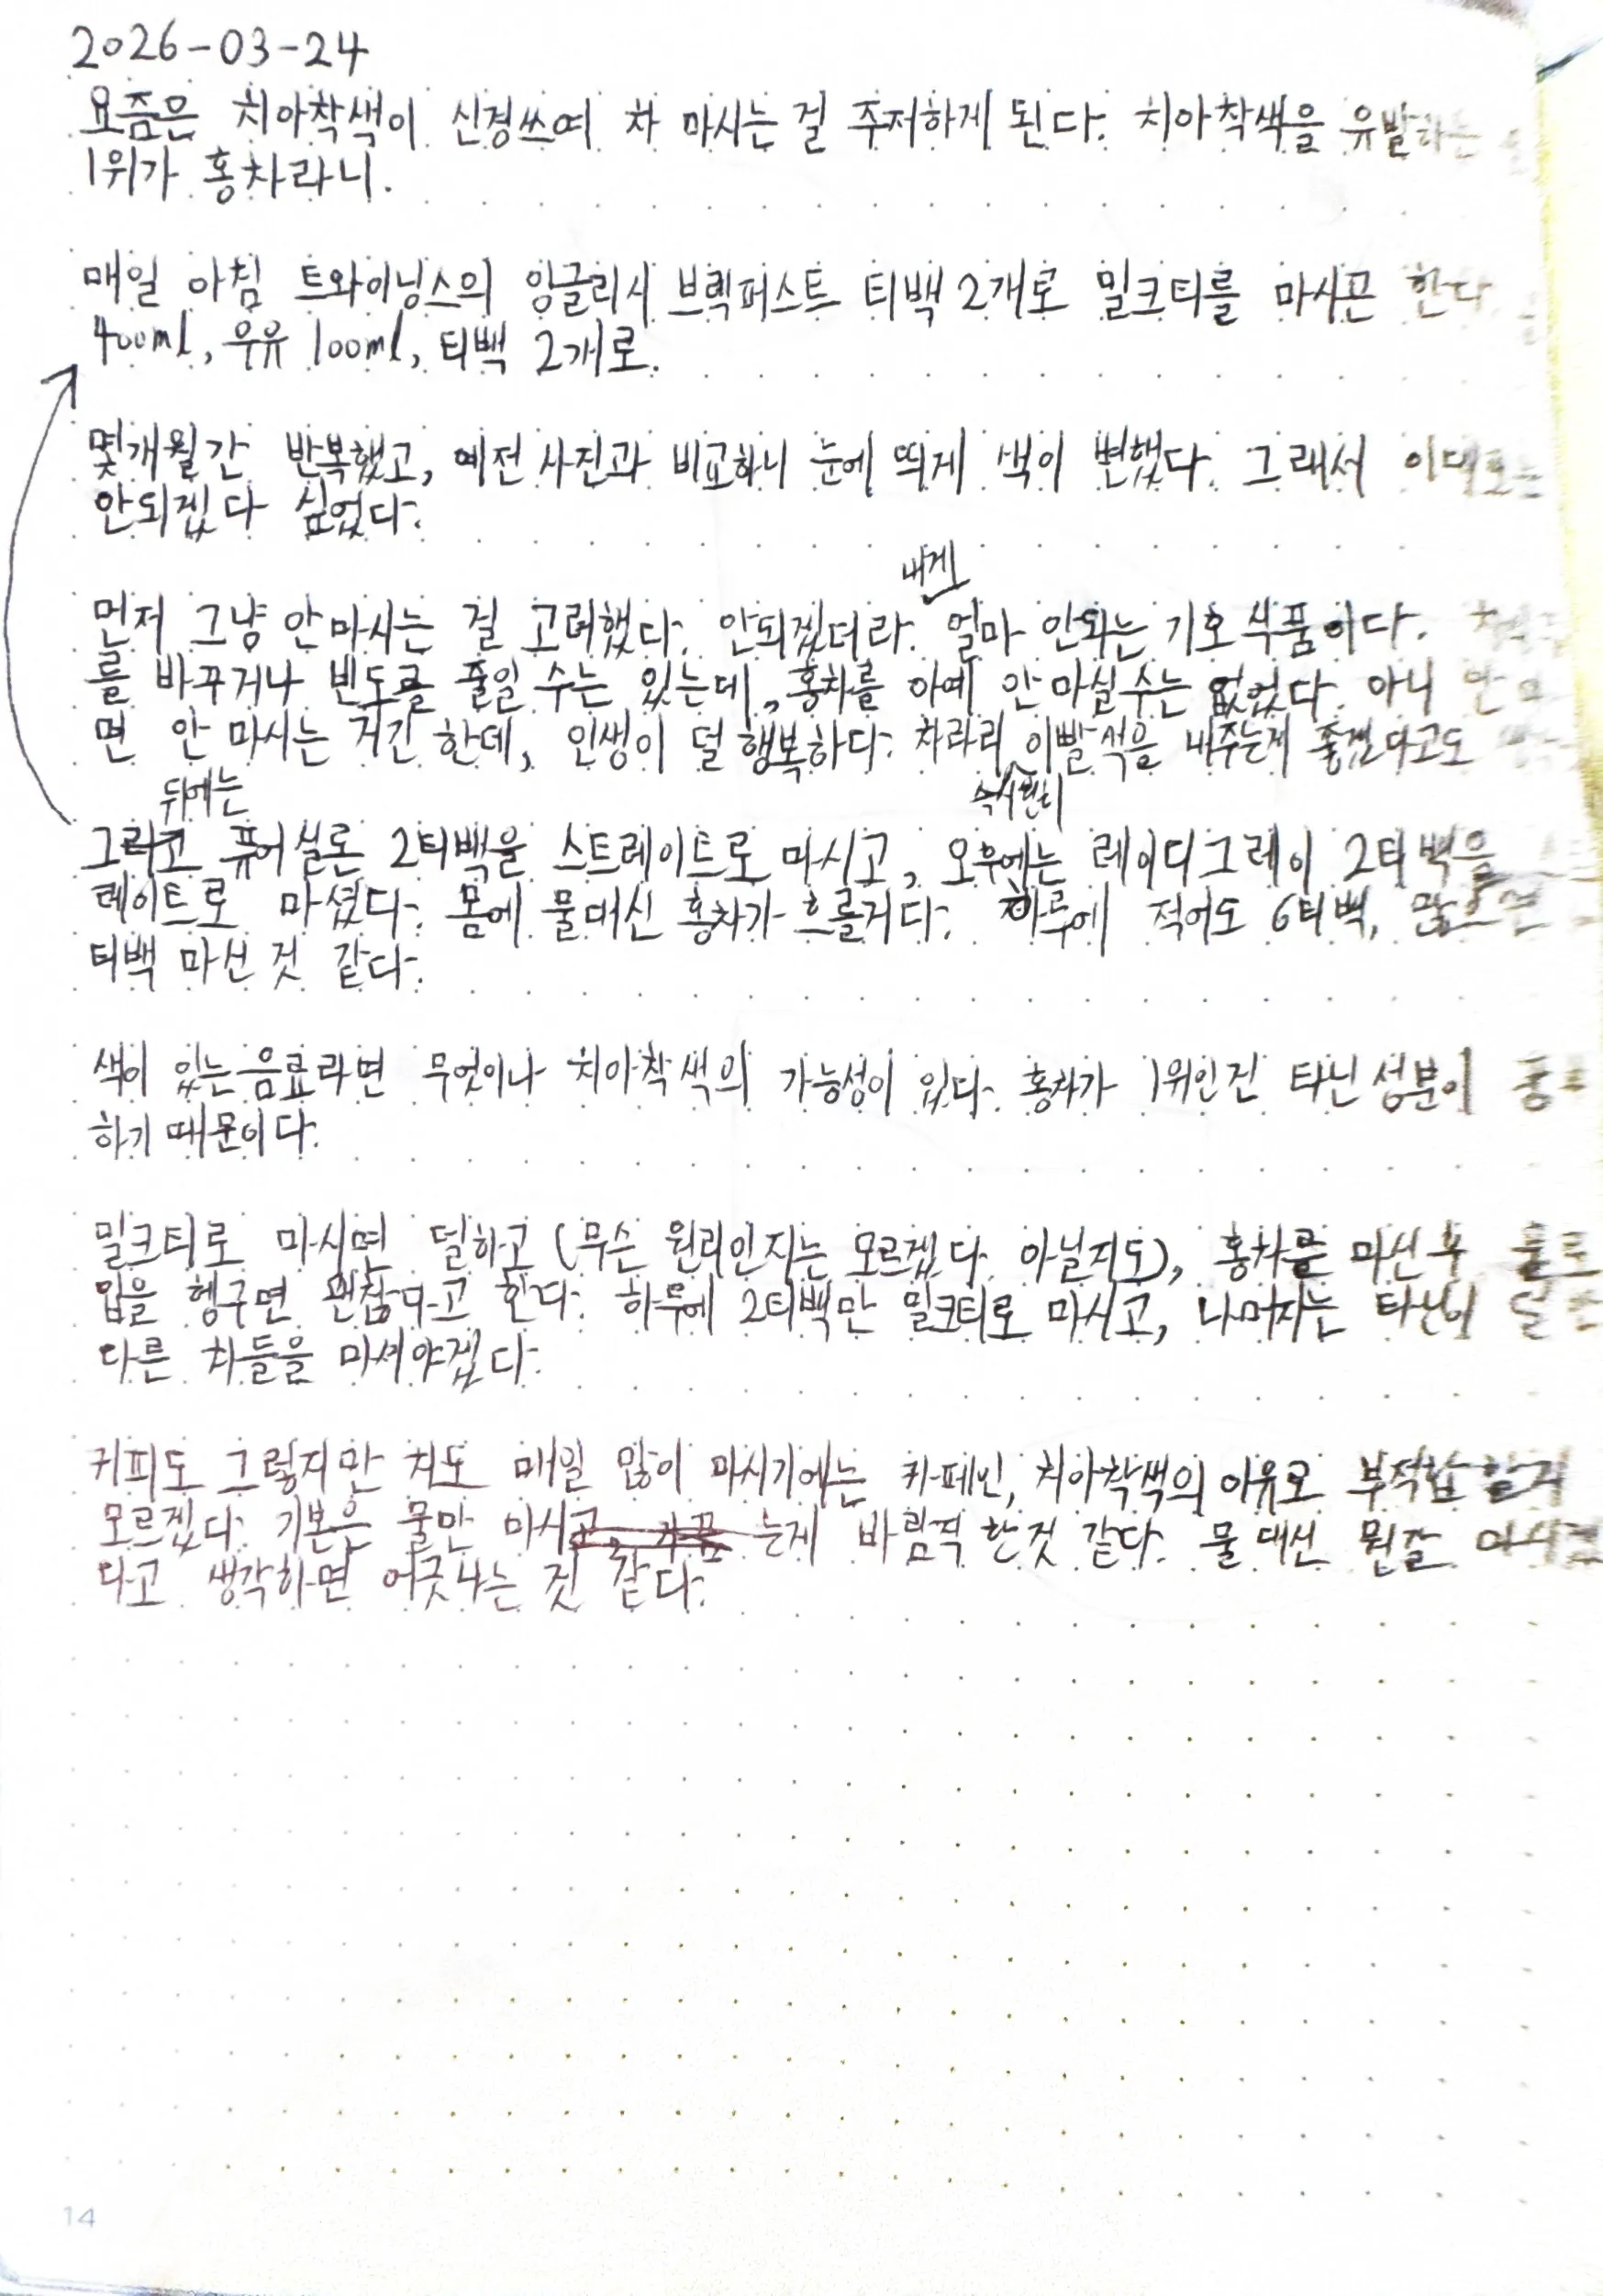 2026-03-24
요즘은 치아착색이 신경쓰여 차 마시는 걸 주저하게 된다. 치아착색을 유발하는
1위가 홍차라니.
매일 아침 트와이닝스의 잉글리시 브렉퍼스트 티백 2개로 밀크티를 마시곤 한다
400ml, 우유 100ml, 티백 2개로.
몇개월간 반복했고, 예전 사진과 비교하니 눈에 띄게 색이 변했다. 그래서 이대로는
안되겠다 싶었다.
내게
먼저 그냥 안 마시는 걸 고려했다. 안되겠더라. 얼마 안되는 기호식품이다.
를 바꾸거나 빈도를 줄일 수는 있는데, 홍차를 아예 안 마실 수는 없었다. 아니 안
면 안 마시는 거긴 한데, 인생이 덜 행복하다. 차라리 이빨색을 내주는게 좋겠다고도
뒤에는
그리고 퓨어실론 2티백을 스트레이트로 마시고, 오후에는 레이디그레이 2티백을
레이트로 마셨다. 몸에 물대신 홍차가 흐를거다. 하루에 적어도 6티백, 많으면
티백 마신 것 같다.
색이 있는 음료라면 무엇이나 치아착색의 가능성이 있다. 홍차가 1위인건 타닌 성분이
하기 때문이다.
밀크티로 마시면 덜하고 (무슨 원리인지는 모르겠다. 아닐지도), 홍차를 마신 후 물로
입을 헹구면 괜찮다고 한다. 하루에 2티백만 밀크티로 마시고, 나머지는 타닌이 덜
다른 차들을 마셔야겠다.
커피도 그렇지만 차도 매일 많이 마시기에는 카페인, 치아착색의 이유로 부적합할지
모르겠다. 기본은 물만 마시는게 바람직한것 같다. 물 대신 뭔갈
다고 생각하면 어긋나는 것 같다.
14